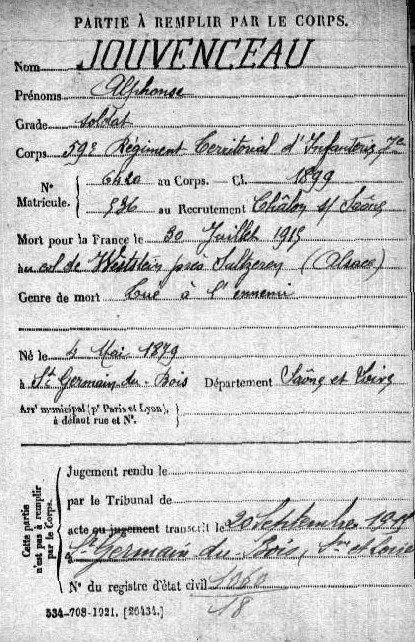 PARTIE À REMPLIR PAR LE CORPS.
Nom JOUVENCEAU
Prénoms Alphonse
Grade soldat
Corps 59e Régiment Territorial d'Infanterie
N° Matricule. { 6420 au Corps. Cl. 1899
936 au Recrutement Châlon s/ Saône
Mort pour la France le 30 Juillet 1915
au col de Wettstein près Sultzeren (Alsace)
Genre de mort Tué à l'ennemi
Né le 4 Mai 1879
à St Germain-du-Bois Département Saône et Loire
Arrt municipal (pr Paris et Lyon), à défaut rue et N°. }
Cette partie n'est pas à remplir par le Corps. {
Jugement rendu le
par le Tribunal de
acte ou jugement transcrit le 20 Septembre
à St Germain du-Bois, Sne et Loire
N° du registre d'état civil
18
534-708-1921. [26434.]